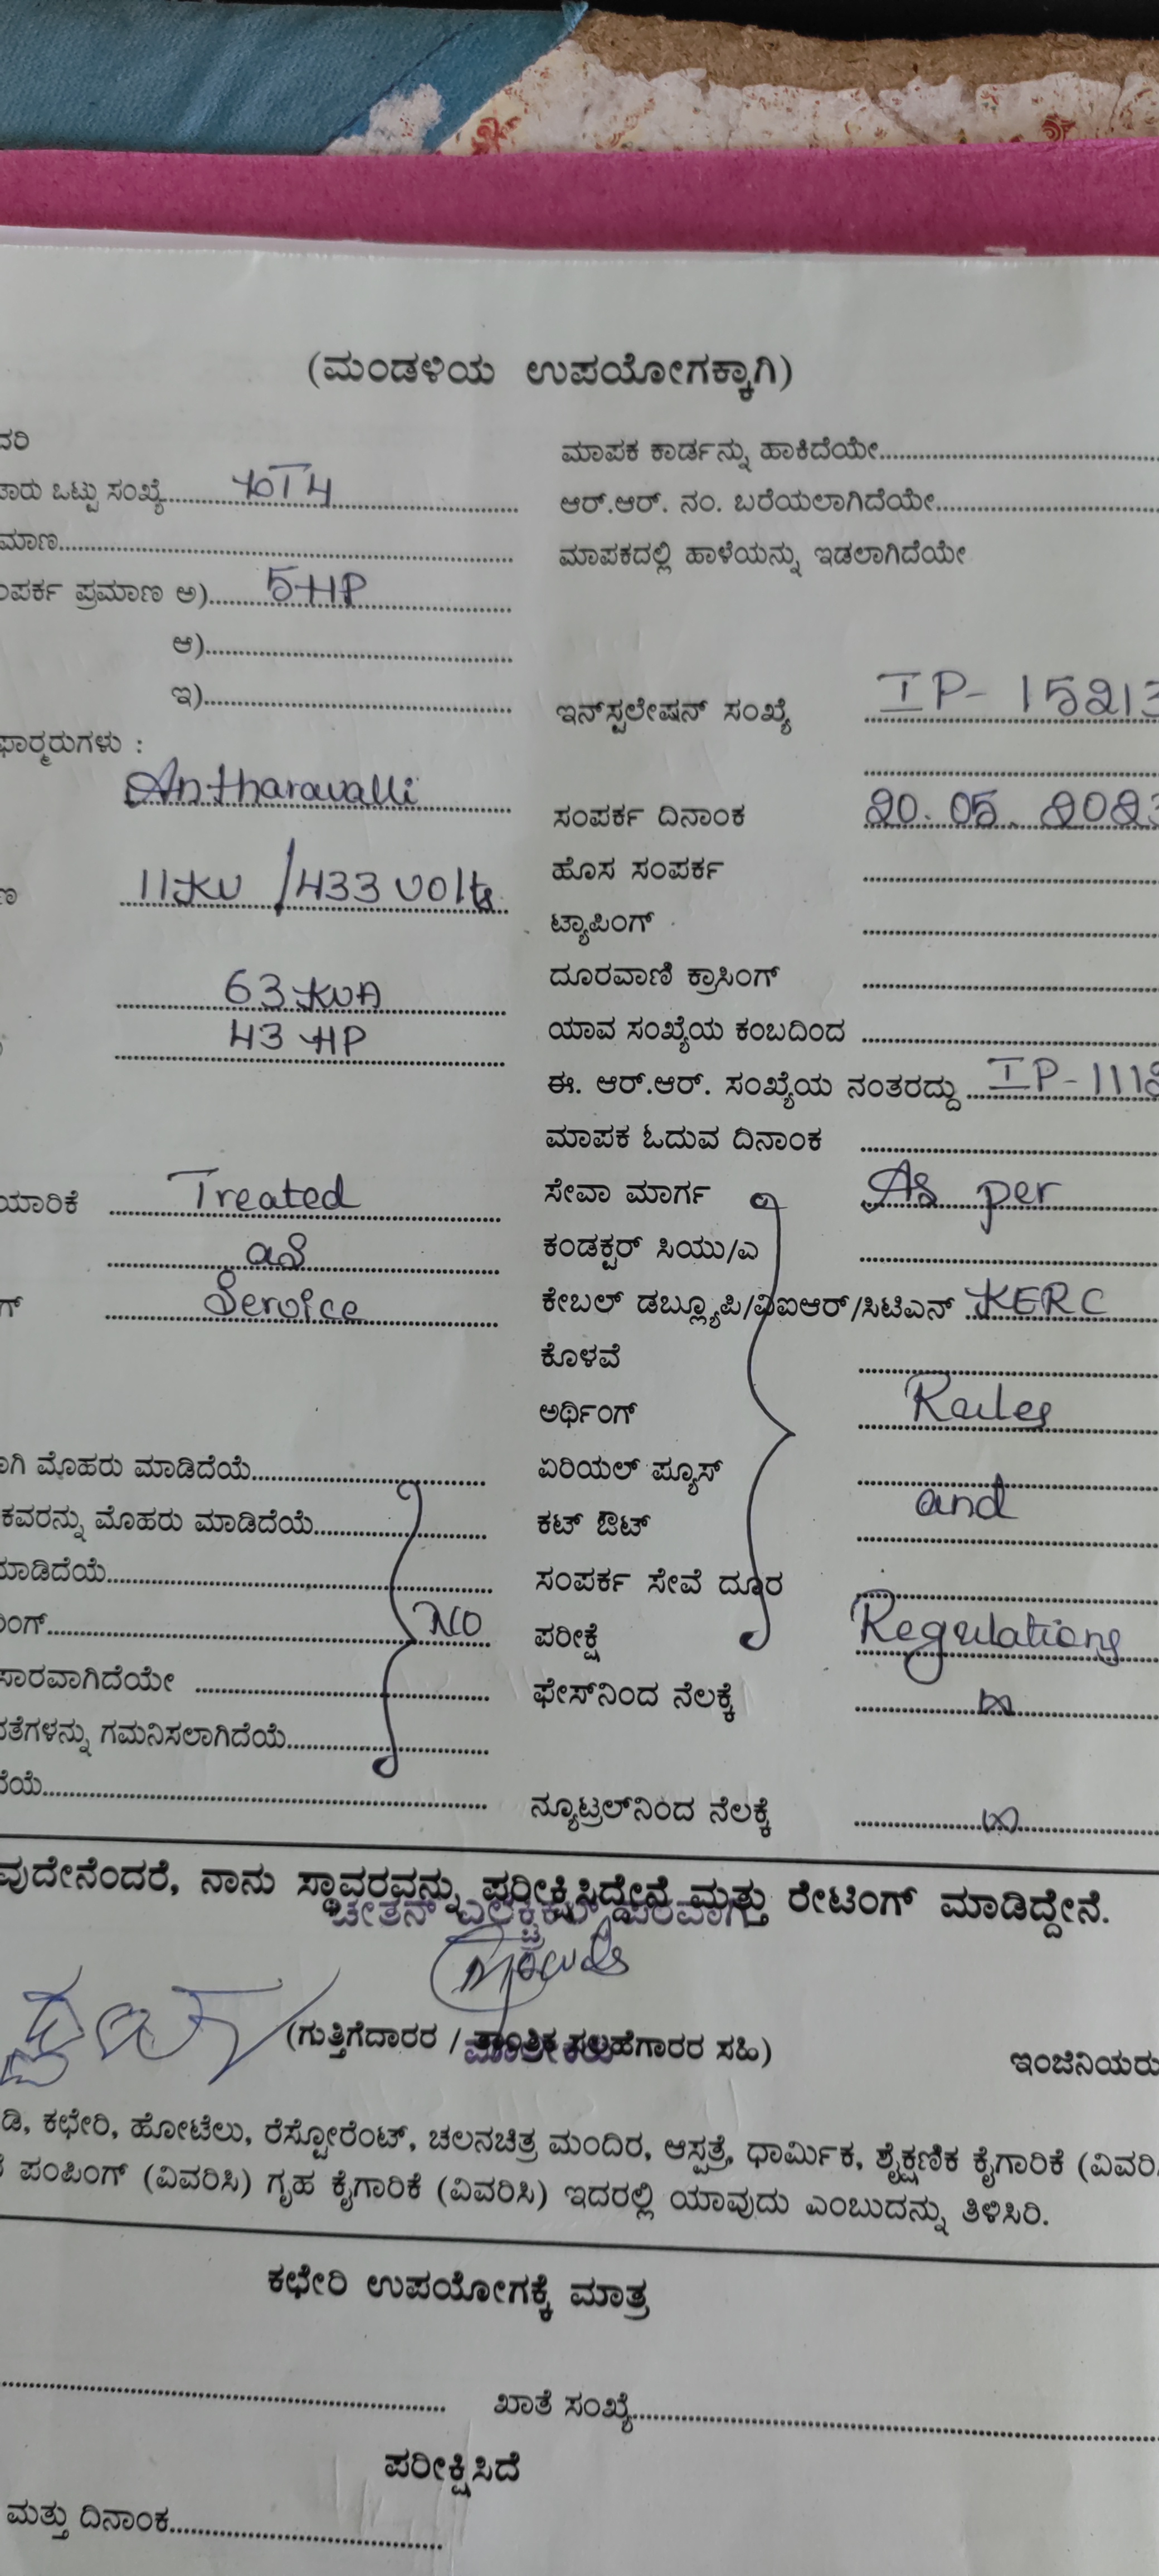 (ಮಂಡಳಿಯ ಉಪಯೋಗಕ್ಕಾಗಿ)
ವರಿ
ಮಾಪಕ ಕಾರ್ಡನ್ನು ಹಾಕಿದೆಯೇ
ಒಟ್ಟು ಸಂಖ್ಯೆ
ಆರ್.ಆರ್. ನಂ. ಬರೆಯಲಾಗಿದೆಯೇ
ಮಾಣ
ಮಾಪಕದಲ್ಲಿ ಹಾಳೆಯನ್ನು ಇಡಲಾಗಿದೆಯೇ
ಂಪರ್ಕ ಪ್ರಮಾಣ ಅ) 5HP
ಆ)
ಇ)
ಇನ್‌ಸ್ಟಲೇಷನ್ ಸಂಖ್ಯೆ IP-15213
ಫಾರ್ಮರುಗಳು :
Antharavalli
ಸಂಪರ್ಕ ದಿನಾಂಕ 20.05.2023
ಹೊಸ ಸಂಪರ್ಕ
11KV /433 volts
ಟ್ಯಾಪಿಂಗ್
ದೂರವಾಣಿ ಕ್ರಾಸಿಂಗ್
63 KVA
ಯಾವ ಸಂಖ್ಯೆಯ ಕಂಬದಿಂದ
43 HP
ಈ. ಆರ್.ಆರ್. ಸಂಖ್ಯೆಯ ನಂತರದ್ದು IP-1118
ಮಾಪಕ ಓದುವ ದಿನಾಂಕ
ಯಾರಿಕೆ Treated
ಸೇವಾ ಮಾರ್ಗ As per
as
ಕಂಡಕ್ಟರ್ ಸಿಯು/ಎ
ಗ್ Service
ಕೇಬಲ್ ಡಬ್ಲ್ಯೂಪಿ/ವಿಐಆರ್/ಸಿಟಿಎಸ್ KERC
ಕೊಳವೆ
ಅರ್ಥಿಂಗ್ Rules
ಾಗಿ ಮೊಹರು ಮಾಡಿದೆಯೆ
ಏರಿಯಲ್ ಪ್ಯೂಸ್
ಕವರನ್ನು ಮೊಹರು ಮಾಡಿದೆಯೆ
ಕಟ್ ಔಟ್ and
ಮಾಡಿದೆಯೆ
ಸಂಪರ್ಕ ಸೇವೆ ದೂರ
ಂಗ್ NO
ಪರೀಕ್ಷೆ Regulations
ಸಾರವಾಗಿದೆಯೇ
ಫೇಸ್‌ನಿಂದ ನೆಲಕ್ಕೆ
ತೆಗಳನ್ನು ಗಮನಿಸಲಾಗಿದೆಯೆ
ದೆಯೆ
ನ್ಯೂಟ್ರಲ್‌ನಿಂದ ನೆಲಕ್ಕೆ
ವುದೇನೆಂದರೆ, ನಾನು ಸ್ಥಾವರವನ್ನು ಪರೀಕ್ಷಿಸಿದ್ದೇನೆ ಮತ್ತು ರೇಟಿಂಗ್ ಮಾಡಿದ್ದೇನೆ.
ಚೇತನ್ ಎಲೆಕ್ಟ್ರಿಕಲ್ಸ್ ಪರವಾಗಿ
(ಗುತ್ತಿಗೆದಾರರ / ತಾಂತ್ರಿಕ ಸಲಹೆಗಾರರ ಸಹಿ)
ಮಾಲೀಕರು
ಇಂಜಿನಿಯರು
ಡಿ, ಕಛೇರಿ, ಹೋಟೆಲು, ರೆಸ್ಟೋರೆಂಟ್, ಚಲನಚಿತ್ರ ಮಂದಿರ, ಆಸ್ಪತ್ರೆ, ಧಾರ್ಮಿಕ, ಶೈಕ್ಷಣಿಕ ಕೈಗಾರಿಕೆ (ವಿವರಿ
ಪಂಪಿಂಗ್ (ವಿವರಿಸಿ) ಗೃಹ ಕೈಗಾರಿಕೆ (ವಿವರಿಸಿ) ಇದರಲ್ಲಿ ಯಾವುದು ಎಂಬುದನ್ನು ತಿಳಿಸಿರಿ.
ಕಛೇರಿ ಉಪಯೋಗಕ್ಕೆ ಮಾತ್ರ
ಖಾತೆ ಸಂಖ್ಯೆ
ಪರೀಕ್ಷಿಸಿದೆ
ಮತ್ತು ದಿನಾಂಕ